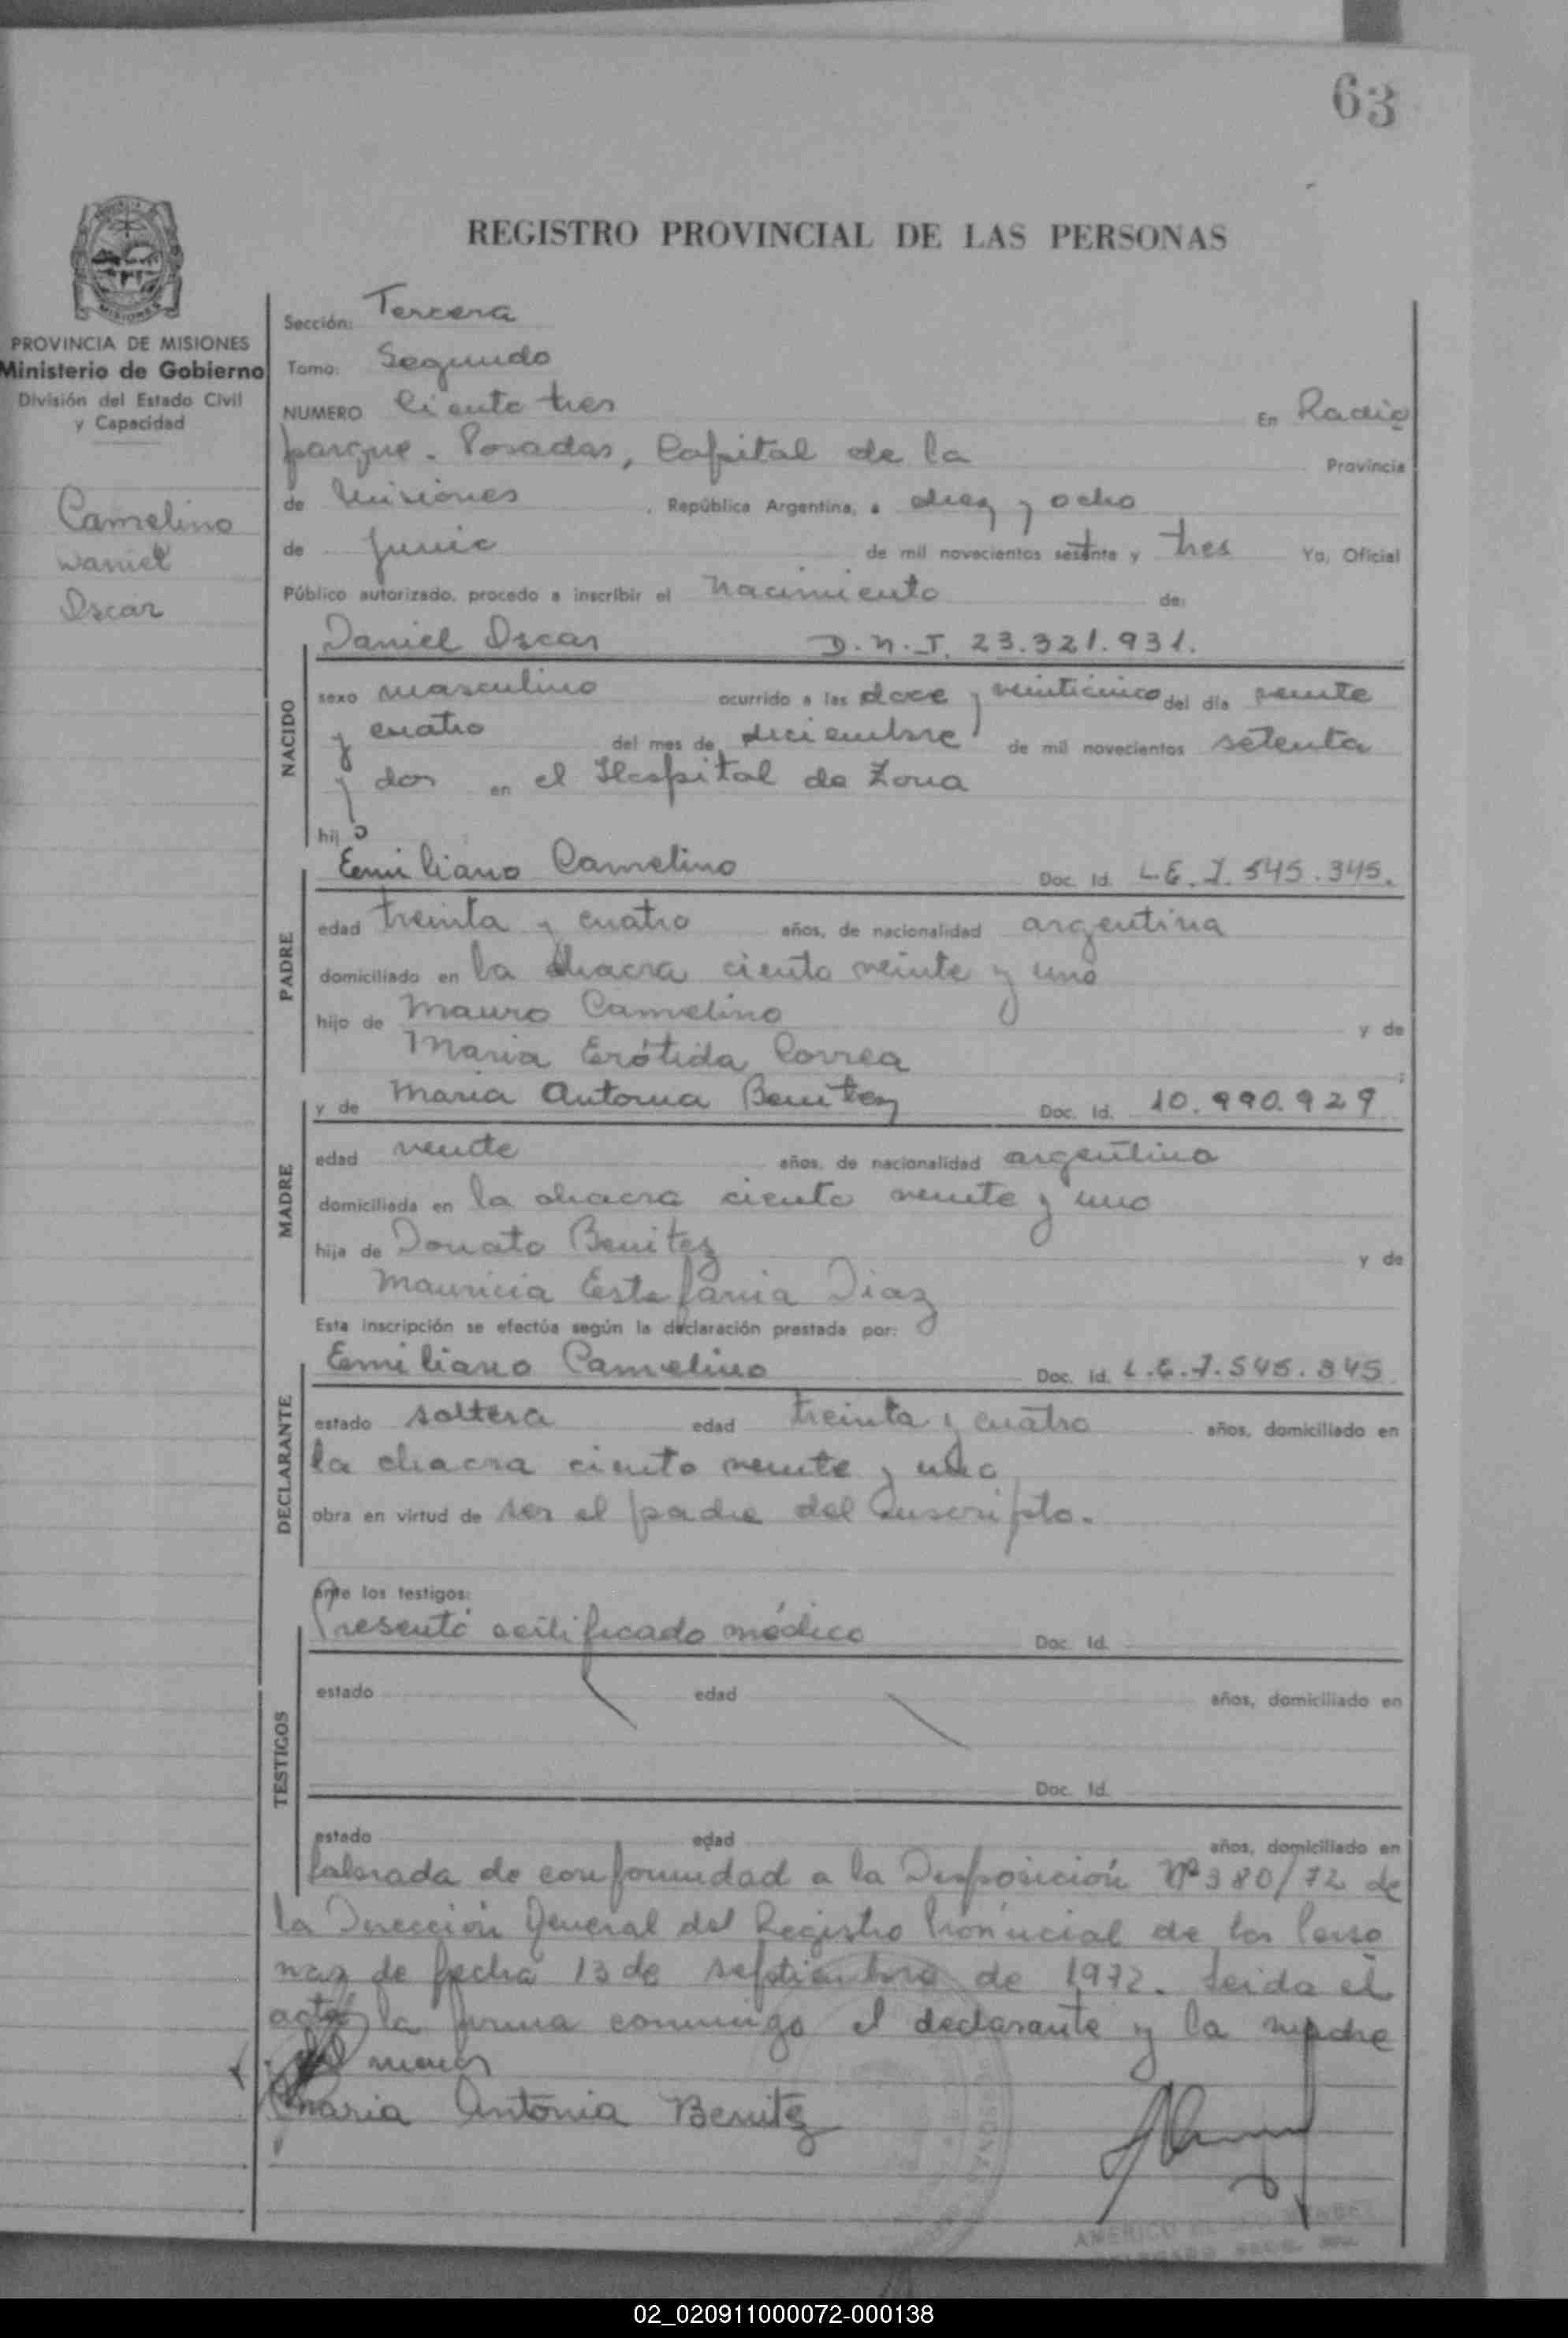 63
REGISTRO PROVINCIAL DE LAS PERSONAS
MISIONES
PROVINCIA DE MISIONES
Ministerio de Gobierno
División del Estado Civil
y Capacidad
Camelino
Daniel
Oscar
Sección: Tercera
Tomo: Segundo
NUMERO Ciento tres En Radio
parque. Posadas, Capital de la Provincia
de Misiones, República Argentina, a diez y ocho
de Junio de mil novecientos setenta y tres Yo, Oficial
Público autorizado, procedo a inscribir el nacimiento de:
Daniel Oscar D.N.I. 23.321.931.
NACIDO
sexo masculino ocurrido a las doce y veinticinco del día veinte
y cuatro del mes de diciembre de mil novecientos setenta
y dos en el Hospital de Zona
hijo
PADRE
Emiliano Camelino Doc. Id. L.E. 7.545.345.
edad treinta y cuatro años, de nacionalidad argentina
domiciliado en la chacra ciento veinte y uno
hijo de Mauro Camelino y de
Maria Erótida Correa
MADRE
y de Maria Antonia Benitez Doc. Id. 10.990.929
edad veinte años, de nacionalidad argentina
domiciliada en la chacra ciento veinte y uno
hija de Donato Benitez y de
Mauricia Estefania Diaz
Esta inscripción se efectúa según la declaración prestada por:
DECLARANTE
Emiliano Camelino Doc. Id. L.E. 7.545.345
estado soltera edad treinta y cuatro años, domiciliado en
la chacra ciento veinte y uno
obra en virtud de ser el padre del inscripto.
Ante los testigos:
TESTIGOS
Presentó certificado médico Doc. Id.
estado edad años, domiciliado en
Doc. Id.
estado edad años, domiciliado en
Labrada de conformidad a la Disposición Nº 380/72 de
la Dirección General del Registro Provincial de las Perso
nas de fecha 13 de septiembre de 1972. Leida el
acta la firma conmigo el declarante y la madre
del menor
Maria Antonia Benitez
02_020911000072-000138